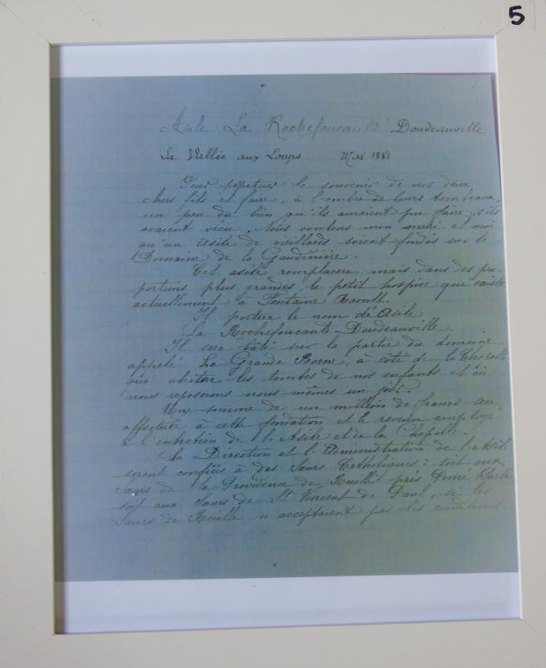 5
Asile La Rochefoucauld Doudeauville
La Vallée aux Loups Mai 1887
Pour perpétuer le souvenir de nos deux
chers fils et faire, à l'ombre de leurs tombeaux,
un peu du bien qu'ils auraient pu faire s'ils
avaient vécu, Nous voulons mon mari et moi
qu'un Asile de vieillards soient fondés sur le
Domaine de la Gaudinière.
Cet asile remplacera mais dans des pro-
portions plus grandes le petit hospice qui existe
actuellement à Fontaine Raoult.
Il portera le nom d'Asile
La Rochefoucault-Doudeauville.
Il sera bâti sur la partie du domaine
appelé La Grande Borne, à côté de la Chapelle
qui abrite les tombes de nos enfants et où
nous reposerons nous mêmes un jour.
Une somme de un million de francs sera
affectée à cette fondation et le revenu employé
à l'entretien de l'Asile et de la Chapelle.
La Direction et l'Administration de l'Asile
seront confiées à des Sœurs Catholiques : soit aux
Sœurs de la Providence de Ruillé près
soit aux Sœurs de St Vincent de Paul, si les
Sœurs de Ruillé n'acceptaient pas les conditions